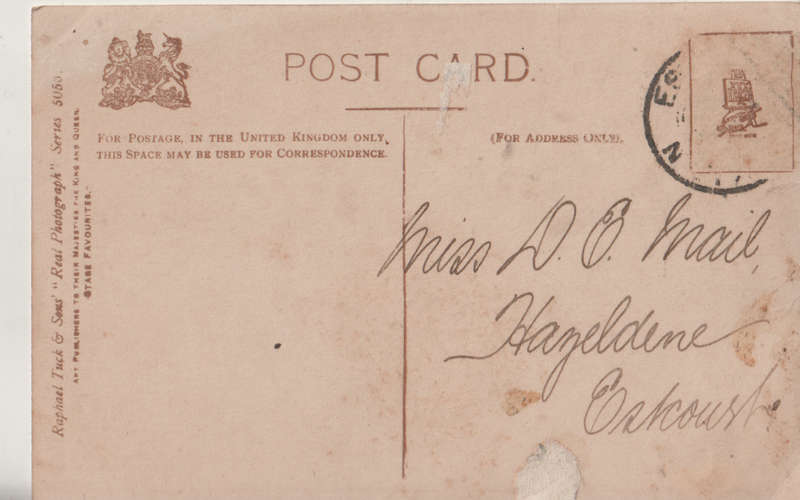 POST CARD.
FOR POSTAGE, IN THE UNITED KINGDOM ONLY,
THIS SPACE MAY BE USED FOR CORRESPONDENCE.
(FOR ADDRESS ONLY).
Raphael Tuck & Sons' "Real Photograph" Series 5050.
ART PUBLISHERS TO THEIR MAJESTIES THE KING AND QUEEN.
"STAGE FAVOURITES."
Miss D. E. Mail,
Hazeldene